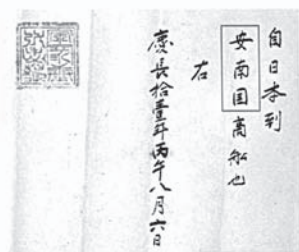 自日本到
安南国商船也
右
慶長拾壹年丙午八月六日